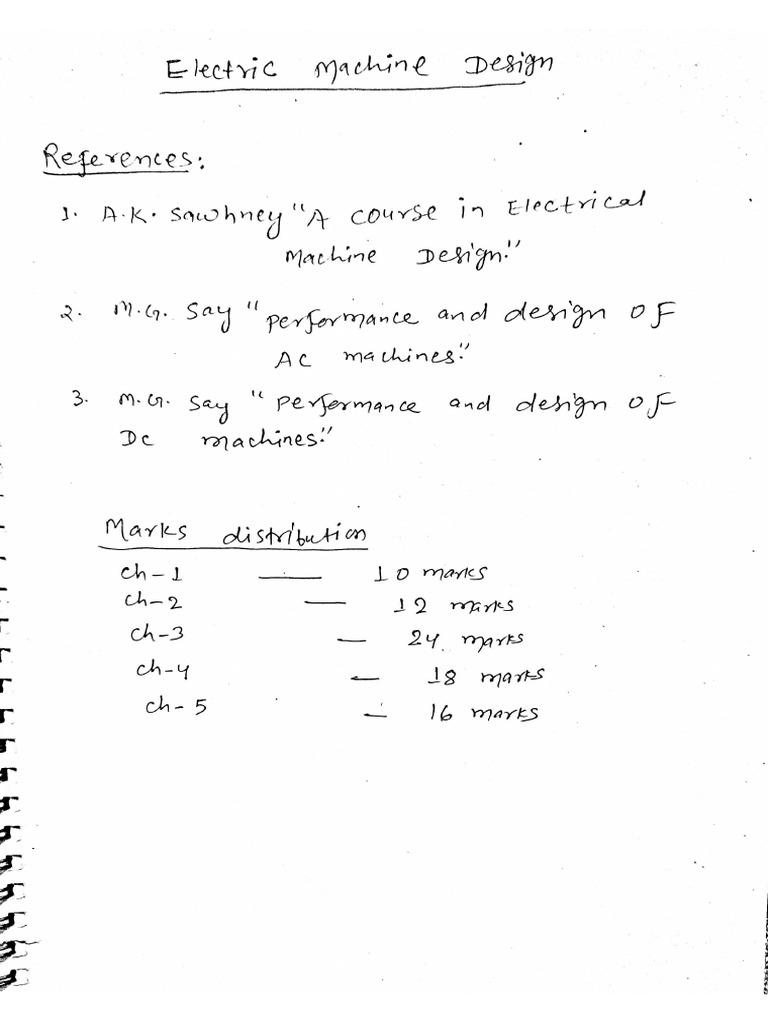 Electric Machine Design
References:
1. A.K. Sawhney "A course in Electrical
Machine Design."
2. M.G. Say "performance and design of
AC machines."
3. M.G. Say "performance and design of
DC machines."
Marks distribution
ch-1 — 10 marks
ch-2 — 12 marks
ch-3 — 24 marks
ch-4 — 18 marks
ch-5 — 16 marks